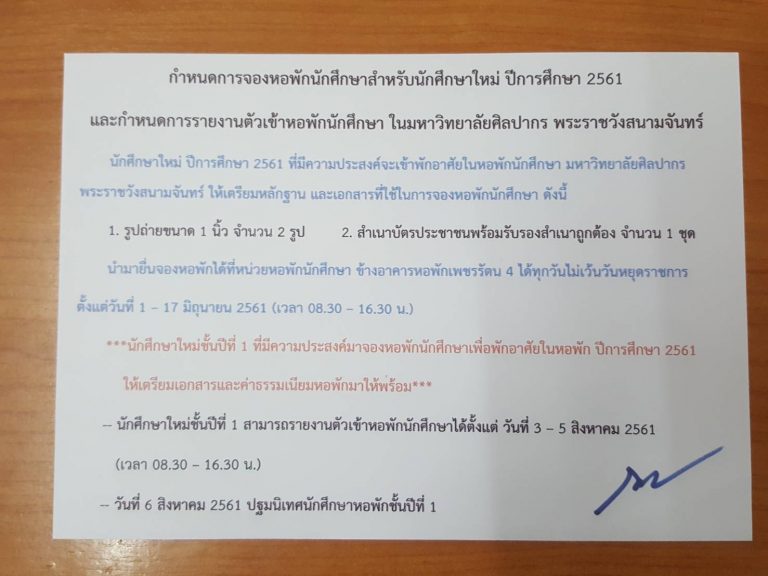 กำหนดการจองหอพักนักศึกษาสำหรับนักศึกษาใหม่ ปีการศึกษา 2561
และกำหนดการรายงานตัวเข้าหอพักนักศึกษา ในมหาวิทยาลัยศิลปากร พระราชวังสนามจันทร์
นักศึกษาใหม่ ปีการศึกษา 2561 ที่มีความประสงค์จะเข้าพักอาศัยในหอพักนักศึกษา มหาวิทยาลัยศิลปากร
พระราชวังสนามจันทร์ ให้เตรียมหลักฐาน และเอกสารที่ใช้ในการจองหอพักนักศึกษา ดังนี้
1. รูปถ่ายขนาด 1 นิ้ว จำนวน 2 รูป 2. สำเนาบัตรประชาชนพร้อมรับรองสำเนาถูกต้อง จำนวน 1 ชุด
นำมายื่นจองหอพักได้ที่หน่วยหอพักนักศึกษา ข้างอาคารหอพักเพชรรัตน 4 ได้ทุกวันไม่เว้นวันหยุดราชการ
ตั้งแต่วันที่ 1 – 17 มิถุนายน 2561 (เวลา 08.30 – 16.30 น.)
***นักศึกษาใหม่ชั้นปีที่ 1 ที่มีความประสงค์มาจองหอพักนักศึกษาเพื่อพักอาศัยในหอพัก ปีการศึกษา 2561
ให้เตรียมเอกสารและค่าธรรมเนียมหอพักมาให้พร้อม***
-- นักศึกษาใหม่ชั้นปีที่ 1 สามารถรายงานตัวเข้าหอพักนักศึกษาได้ตั้งแต่ วันที่ 3 – 5 สิงหาคม 2561
(เวลา 08.30 – 16.30 น.)
-- วันที่ 6 สิงหาคม 2561 ปฐมนิเทศนักศึกษาหอพักชั้นปีที่ 1